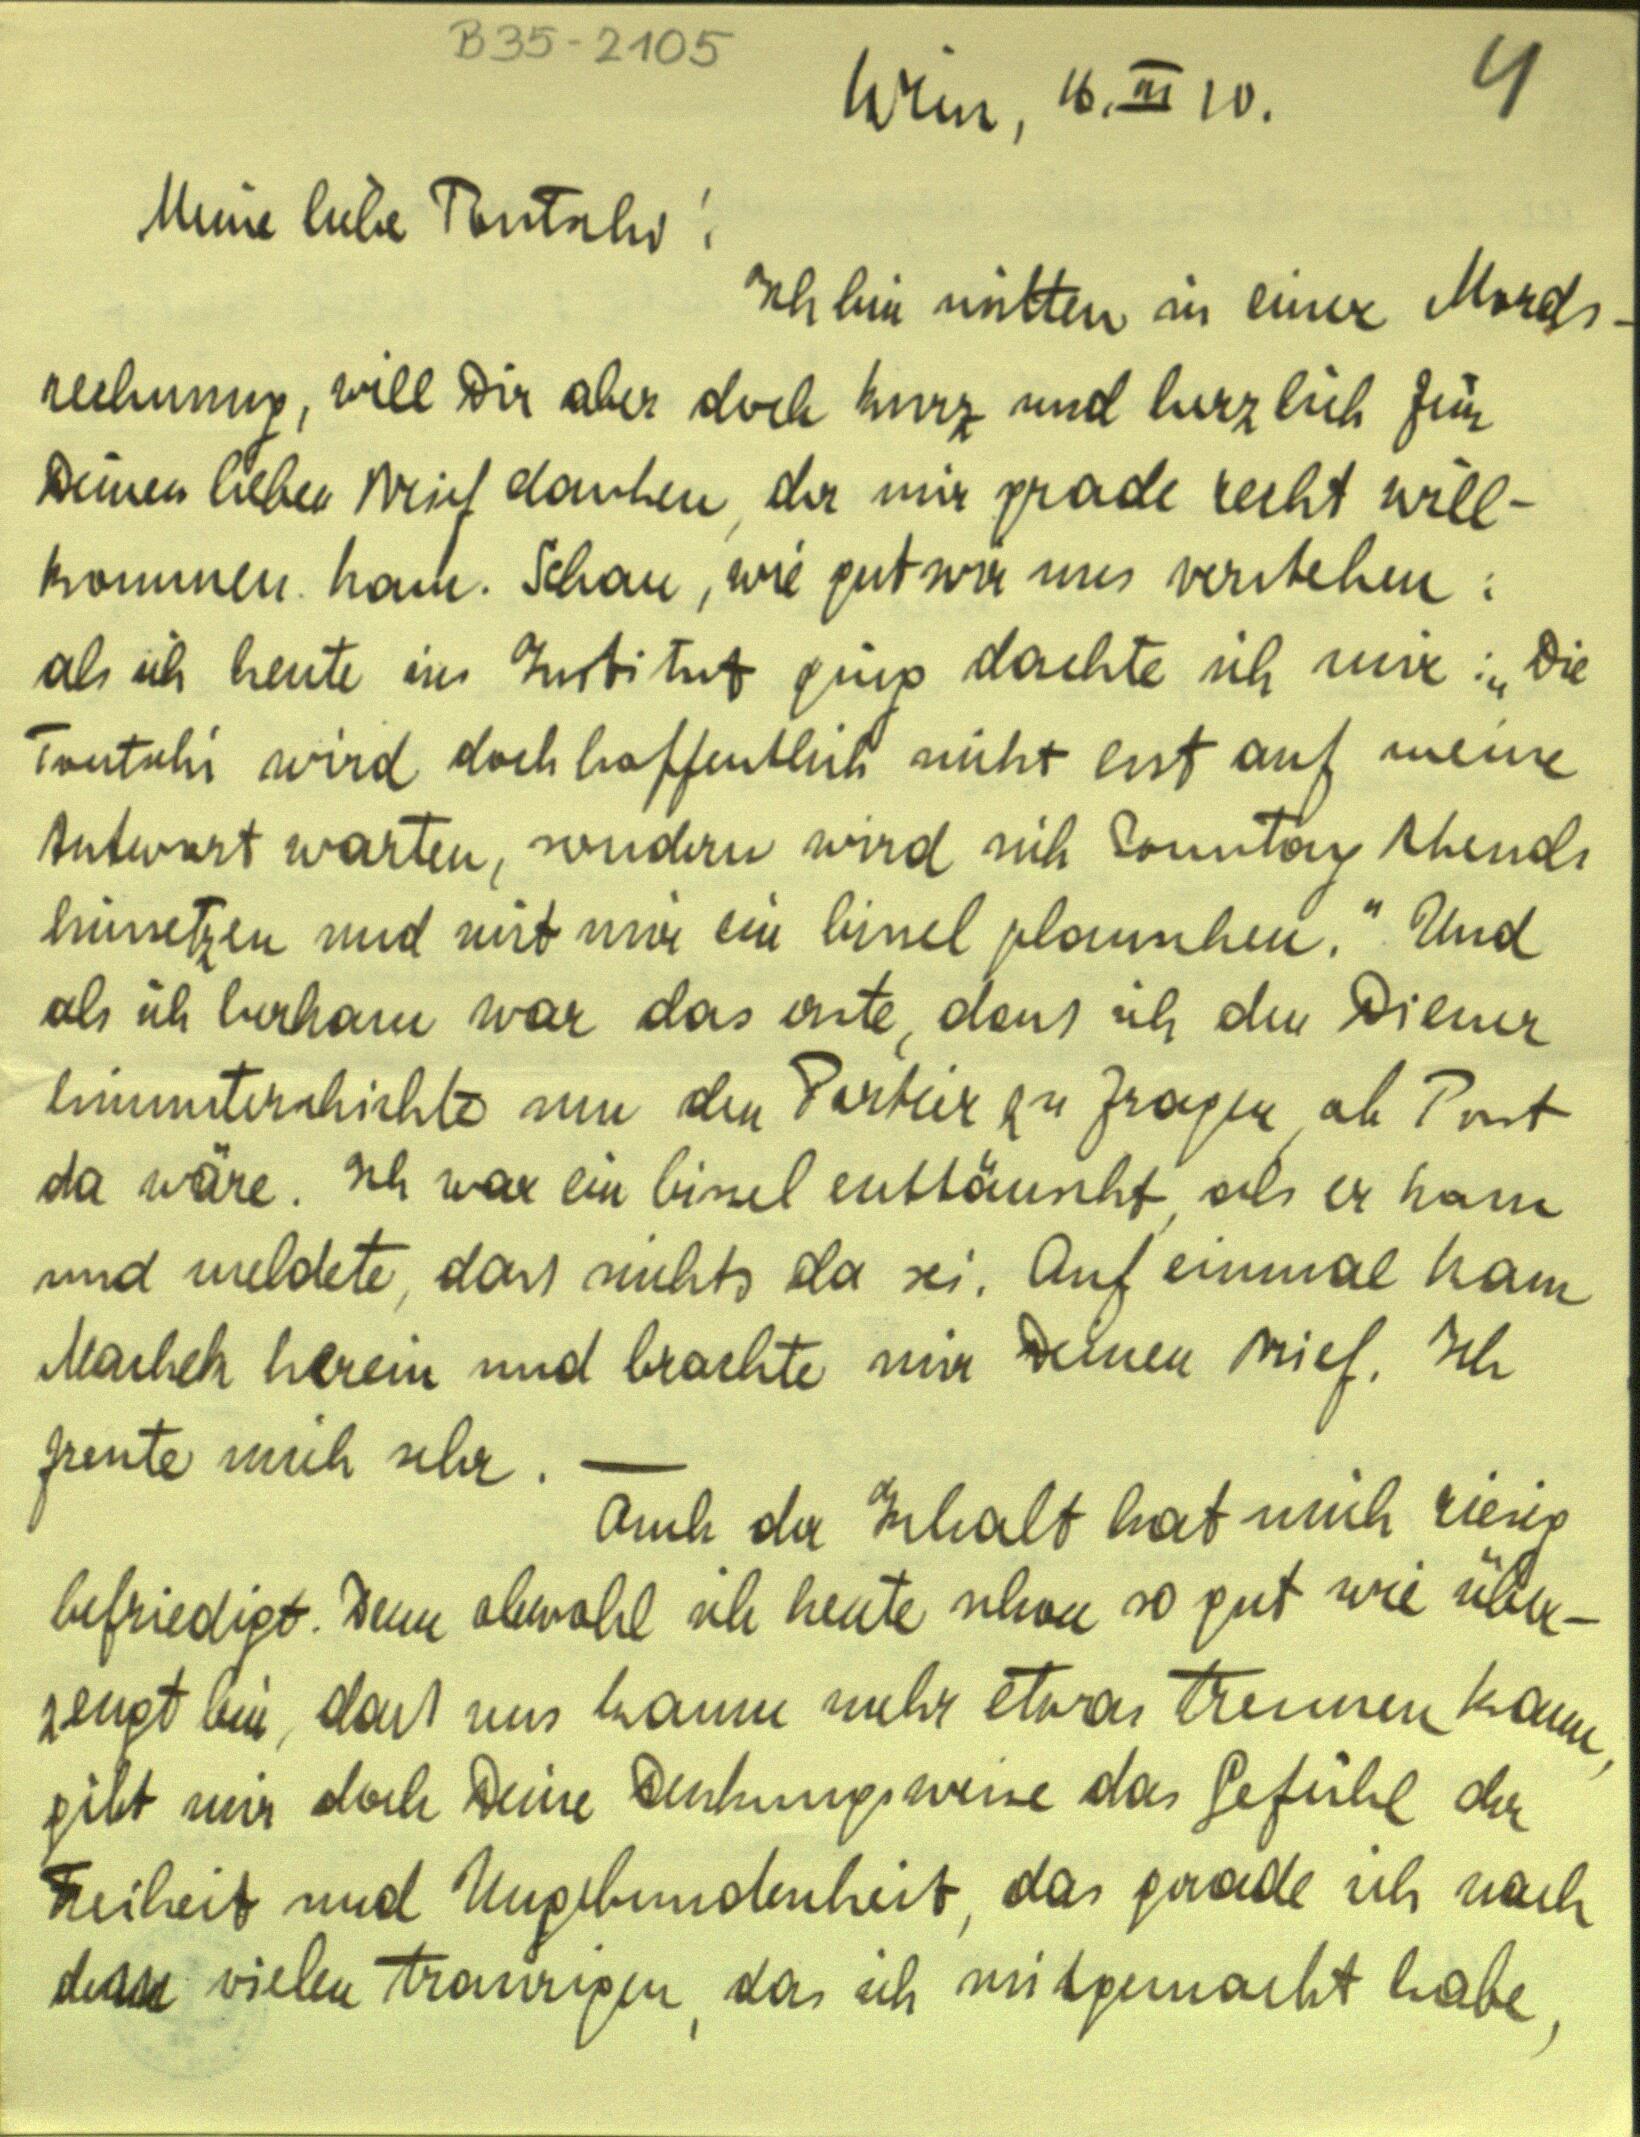 B35-2105
Wien, 16. III 10.
4
Meine liebe Tontschi!
Ich bin mitten in einer Mords-
rechnung, will Dir aber doch kurz und herzlich für
Deinen lieben Brief danken, der mir grade recht will-
kommen kam. Schau, wie gut wir uns verstehen:
als ich heute ins Institut ging dachte ich mir: „Die
Tontschi wird doch hoffentlich nicht erst auf meine
Antwort warten, sondern wird sich Sonntag Abends
hinsetzen und mit mir ein bissel plauschen." Und
als ich herkam war das erste, dass ich den Diener
hinunterschickte um den Portier zu fragen, ob Post
da wäre. Ich war ein bissel enttäuscht, als er kam
und meldete, dass nichts da sei. Auf einmal kam
Machek herein und brachte mir Deinen Brief. Ich
freute mich sehr. —
Auch der Inhalt hat mich riesig
befriedigt. Denn obwohl ich heute schon so gut wie über-
zeugt bin, dass uns kaum mehr etwas trennen kann,
gibt mir doch Deine Denkungsweise das Gefühl der
Freiheit und Ungebundenheit, das gerade ich nach
dem vielen traurigen, das ich mitgemacht habe,